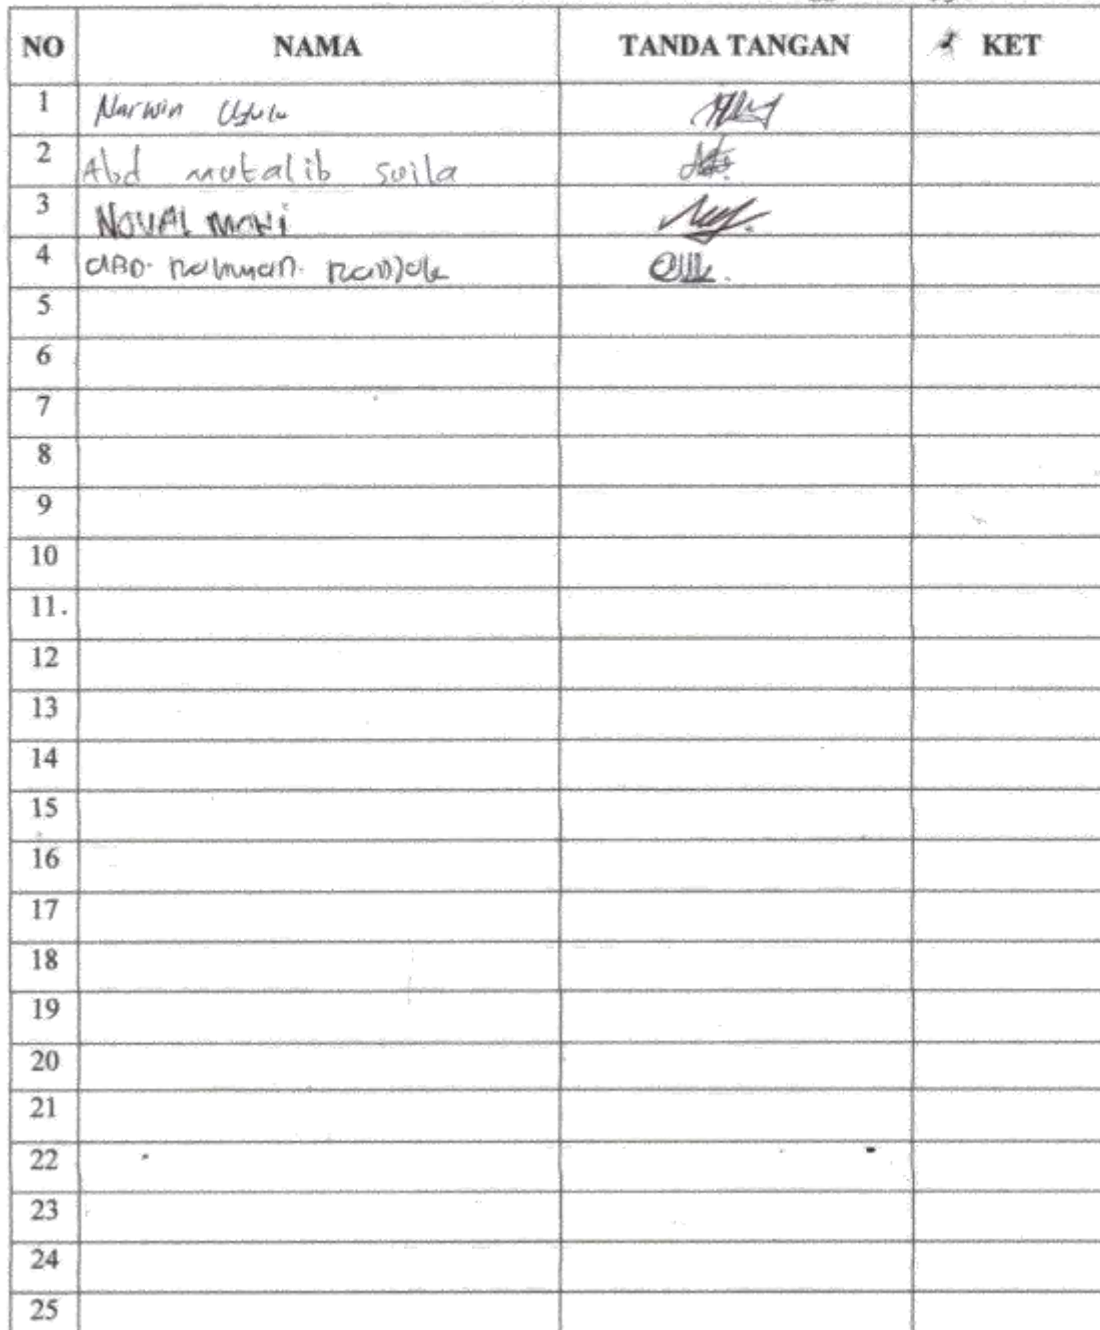 NO NAMA TANDA TANGAN KET
1 Narwin
2 Abd mutalib suila
3 NOVAL MOHI
4 ABD. Rahman.
5
6
7
8
9
10
11.
12
13
14
15
16
17
18
19
20
21
22
23
24
25